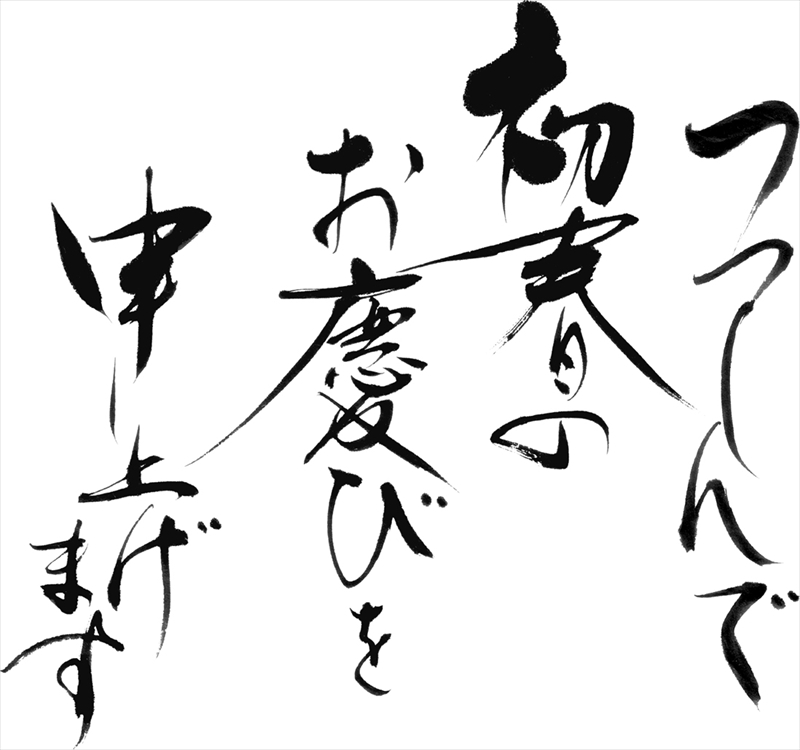 つつしんで
初春の
お慶びを
申上げます